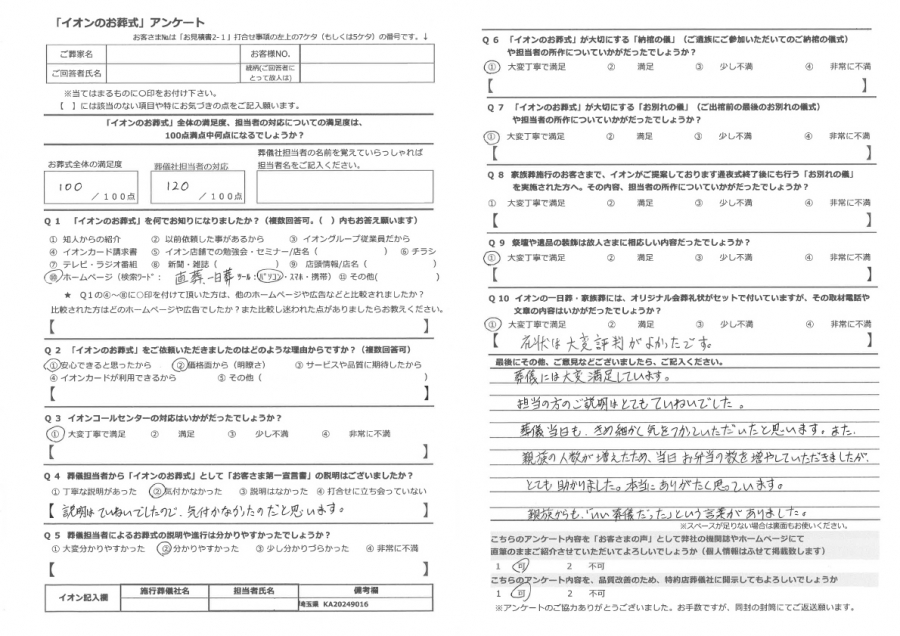 「イオンのお葬式」アンケート
お客さま№は「お見積書2-1」打合せ事項の左上の7ケタ（もしくは5ケタ）の番号です。↓
ご葬家名
お客様NO.
ご回答者氏名
続柄(ご回答者にとって故人は)
※当てはまるものに〇印をお付け下さい。
【　】には該当のない項目や特にお気づきの点をご記入願います。
「イオンのお葬式」全体の満足度、担当者の対応についての満足度は、
100点満点中何点になるでしょうか？
お葬式全体の満足度
100 ／100点
葬儀社担当者の対応
120 ／100点
葬儀社担当者の名前を覚えていらっしゃれば
担当者名をご記入ください。
Q１ 「イオンのお葬式」を何でお知りになりましたか？（複数回答可。（　）内もお答え願います）
① 知人からの紹介 ② 以前依頼した事があるから ③ イオングループ従業員だから
④ イオンカード請求書 ⑤ イオン店舗での勉強会・セミナー/店名（　） ⑥ チラシ
⑦ テレビ・ラジオ番組 ⑧ 新聞・雑誌（　） ⑨ 店頭情報/店名（　）
⑩ ホームページ（検索ワード： 直葬、一日葬 ツール：パソコン・スマホ・携帯）⑪ その他(　)
★ Q１の④～⑧に〇印を付けて頂いた方は、他のホームページや広告などと比較されましたか？
比較された方はどのホームページや広告でしたか？また比較し迷われた点がありましたらお教えください。
【　】
Q２ 「イオンのお葬式」をご依頼いただきましたのはどのような理由からですか？（複数回答可）
①安心できると思ったから ②価格面から（明瞭さ） ③ サービスや品質に期待したから
④ イオンカードが利用できるから ⑤ その他（　）
【　】
Q３ イオンコールセンターの対応はいかがだったでしょうか？
① 大変丁寧で満足 ② 満足 ③ 少し不満 ④ 非常に不満
【　】
Q４ 葬儀担当者から「イオンのお葬式」として「お客さま第一宣言書」の説明はございましたか？
① 丁寧な説明があった ②気付かなかった ③ 説明はなかった ④ 打合せに立ち会っていない
【 説明はていねいでしたので、気付かなかったのだと思います。 】
Q５ 葬儀担当者によるお葬式の説明や進行は分かりやすかったでしょうか？
① 大変分かりやすかった ②分かりやすかった ③ 少し分かりづらかった ④ 非常に不満
【　】
イオン記入欄
施行葬儀社名
担当者名
備考欄
埼玉県 KA20249016
Q６ 「イオンのお葬式」が大切にする「納棺の儀」（ご遺族にご参加いただいてのご納棺の儀式）
や担当者の所作についていかがだったでしょうか？
① 大変丁寧で満足 ② 満足 ③ 少し不満 ④ 非常に不満
【　】
Q７ 「イオンのお葬式」が大切にする「お別れの儀」（ご出棺前の最後のお別れの儀式）
や担当者の所作についていかがだったでしょうか？
① 大変丁寧で満足 ② 満足 ③ 少し不満 ④ 非常に不満
【　】
Q８ 家族葬施行のお客さまで、イオンがご提案しております通夜式終了後にも行う「お別れの儀」
を実施された方へ。その内容、担当者の所作についていかがだったでしょうか？
① 大変丁寧で満足 ② 満足 ③ 少し不満 ④ 非常に不満
【　】
Q９ 祭壇や遺品の装飾は故人さまに相応しい内容だったでしょうか？
① 大変丁寧で満足 ② 満足 ③ 少し不満 ④ 非常に不満
【　】
Q10 イオンの一日葬・家族葬には、オリジナル会葬礼状がセットで付いていますが、その取材電話や
文章の内容はいかがだったでしょうか？
① 大変丁寧で満足 ② 満足 ③ 少し不満 ④ 非常に不満
【 礼状は大変評判がよかったです。 】
最後にその他、ご意見などございましたら、ご記入ください。
葬儀には大変満足しています。
担当の方のご説明はとてもていねいでした。
葬儀当日も、きめ細かく気をつかっていただいたと思います。また、
親族の人数が増えたため、当日お弁当の数を増やしていただきましたが、
とても助かりました。本当にありがたく思っています。
親族からも、「いい葬儀だった」という言葉がありました。
※スペースが足りない場合は裏面もお使いください。
こちらのアンケート内容を「お客さまの声」として弊社の機関誌やホームページにて
直筆のままご紹介させていただいてよろしいでしょうか（個人情報はふせて掲載致します）
1 可 2 不可
こちらのアンケート内容を、品質改善のため、特約店葬儀社に開示してもよろしいでしょうか
1 可 2 不可
※アンケートのご協力ありがとうございました。お手数ですが、同封の封筒にてご返送願います。